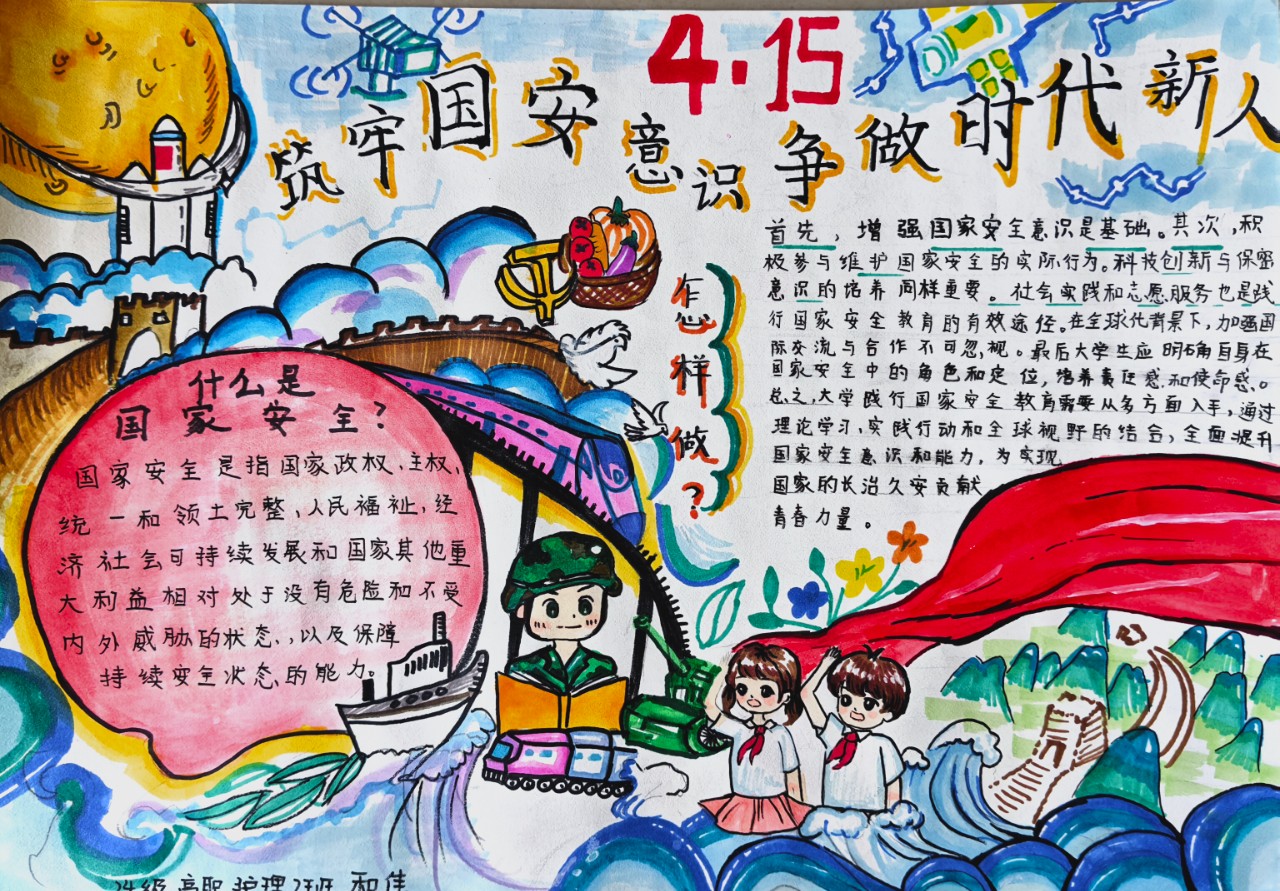 4·15
筑牢国安意识争做时代新人
什么是
国家安全?
国家安全是指国家政权、主权、
统一和领土完整、人民福祉、经
济社会可持续发展和国家其他重
大利益相对处于没有危险和不受
内外威胁的状态、,以及保障
持续安全状态的能力。
怎样做?
首先,增强国家安全意识是基础。其次,积
极参与维护国家安全的实际行为。科技创新与保密
意识的培养同样重要。社会实践和志愿服务也是践
行国家安全教育的有效途径。在全球化背景下,加强国
际交流与合作不可忽视。最后大学生应明确自身在
国家安全中的角色和定位,培养责任感和使命感。
总之,大学践行国家安全教育需要从多方面入手,通过
理论学习,实践行动和全球视野的结合,全面提升
国家安全意识和能力,为实现
国家的长治久安贡献
青春力量。
24级高职护理2班 和佳